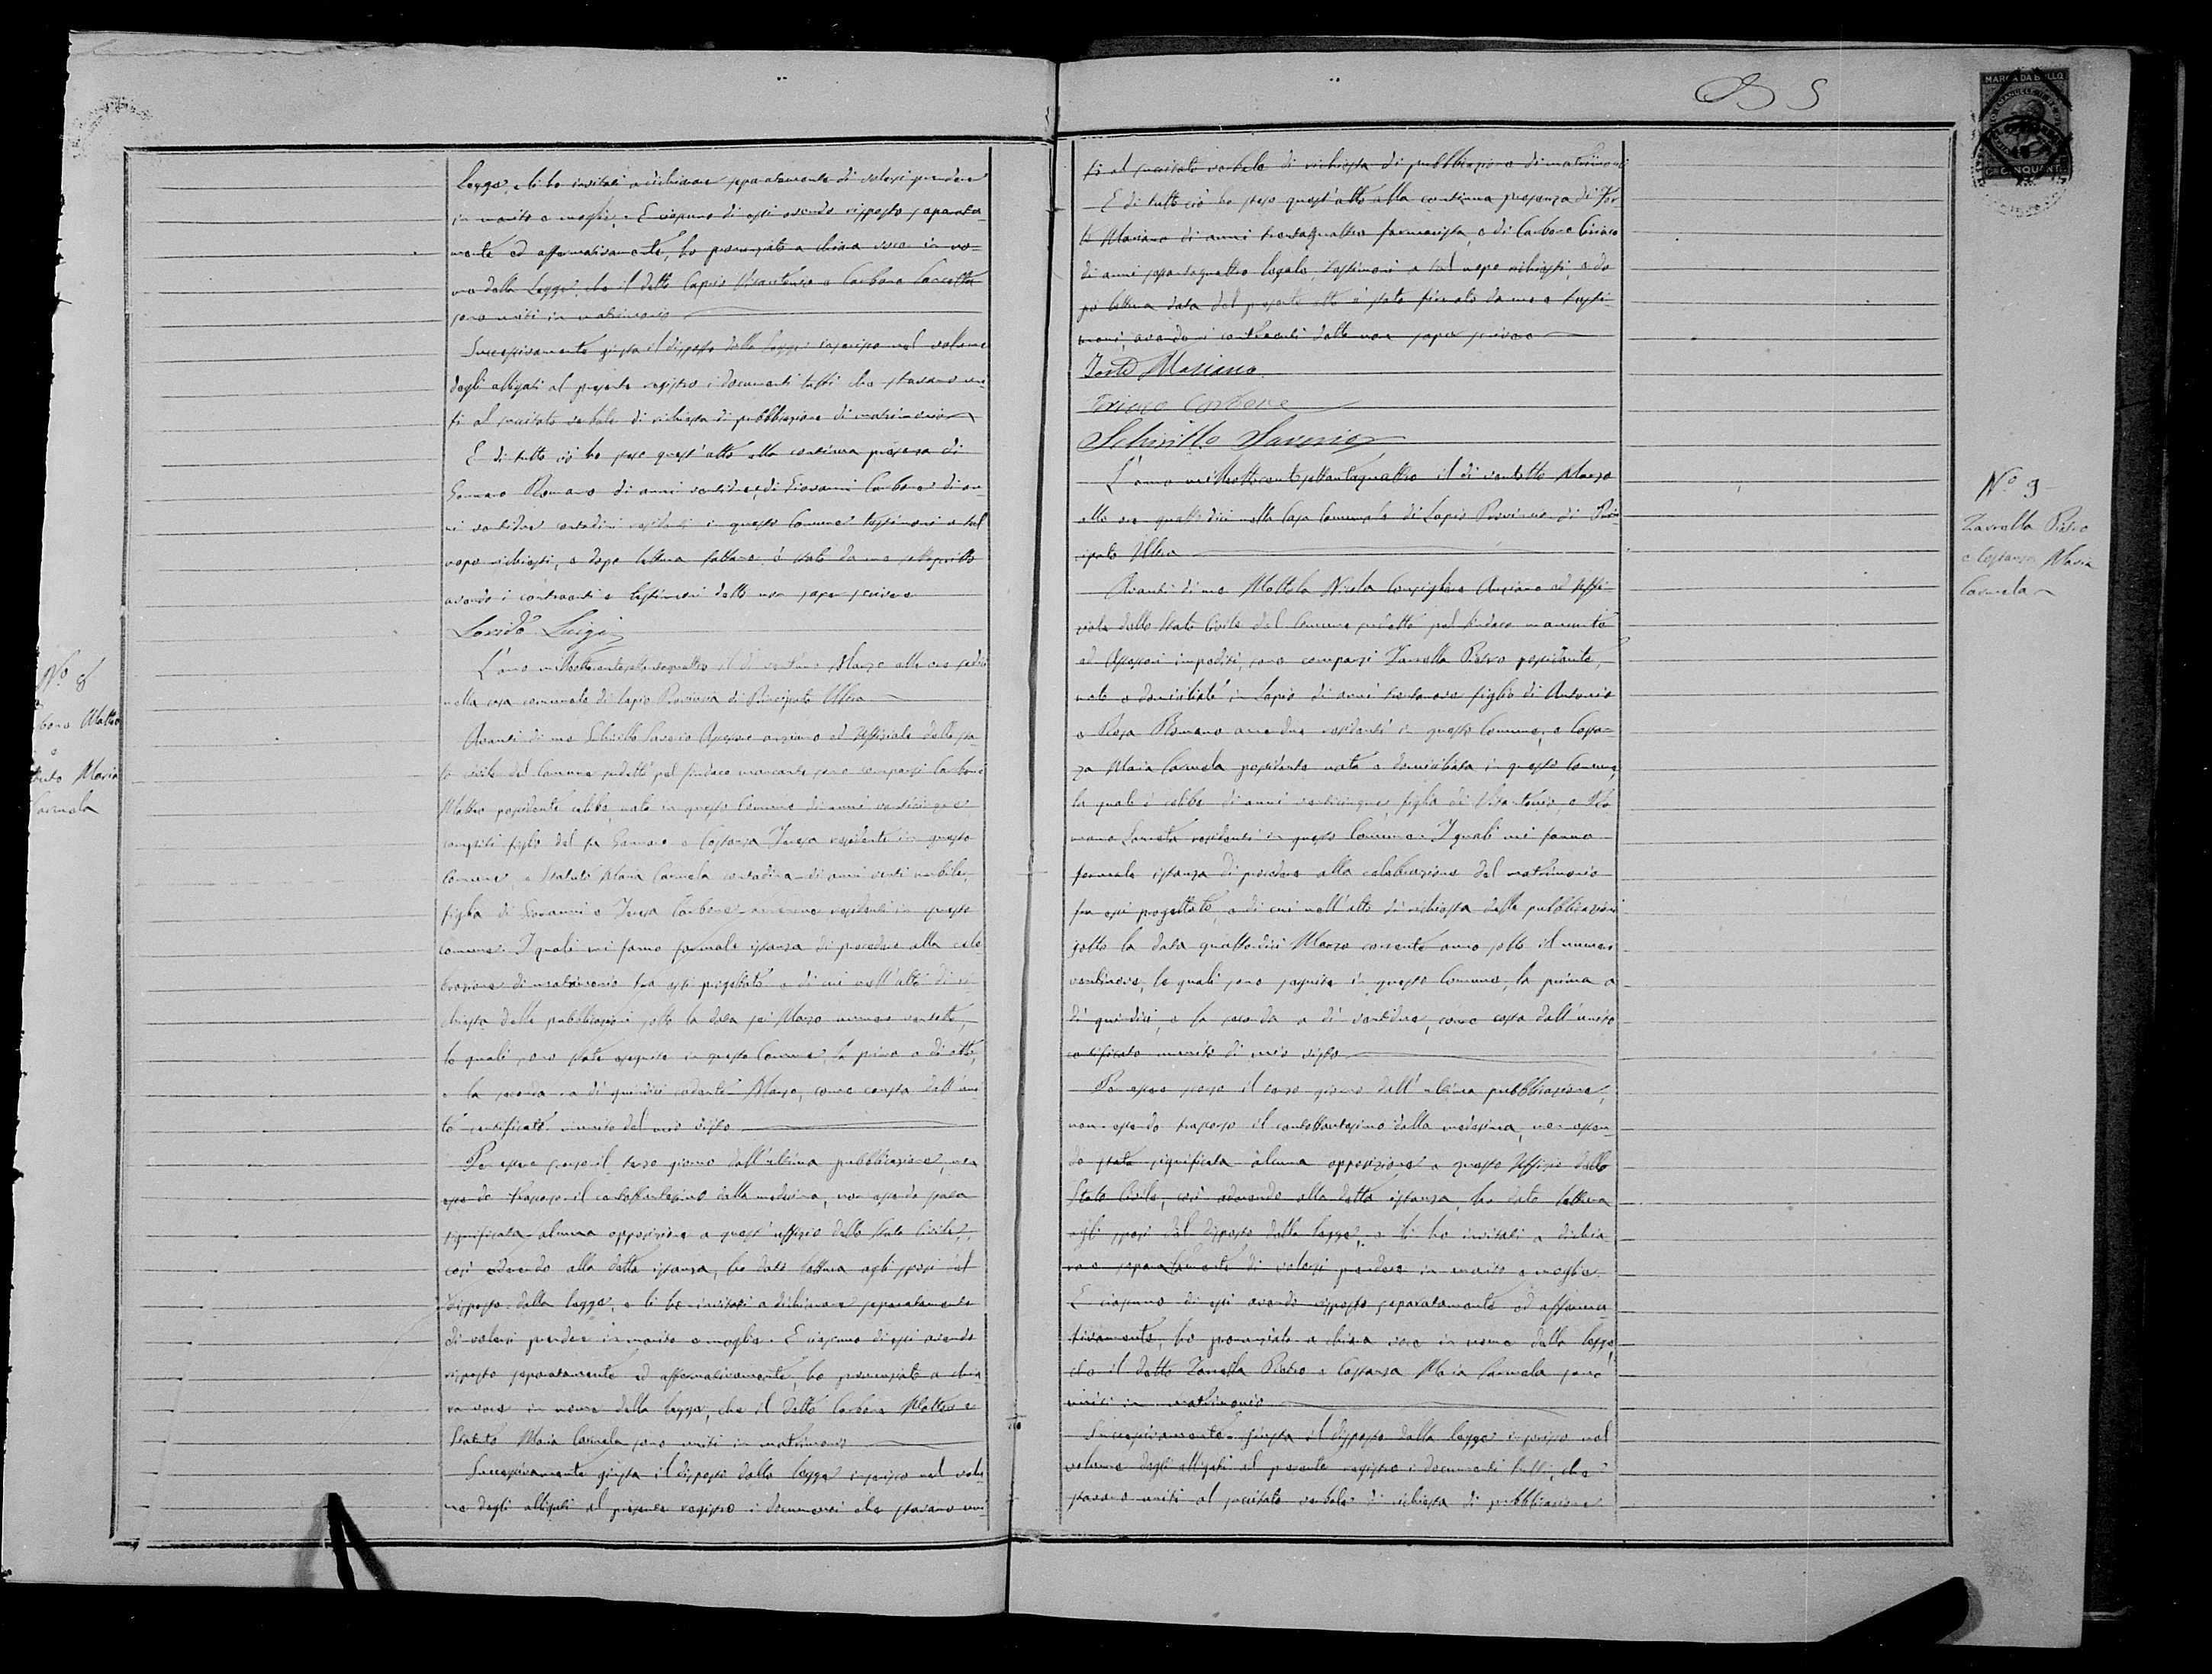 Legge, e li ho invitati a dichiarare separatamente di volersi prendere
in marito e moglie. E ciascuno di essi avendo risposto separata-
mente ed affermativamente, ho pronunziato a chiara voce in no-
me della Legge, che il detto Caprio Visantonio e Carbone Concetta
sono uniti in matrimonio
Successivamente giusta il disposto della Legge inserisco nel volume
degli allegati al presente registro i documenti tutti che stavano uni-
ti al succitato verbale di richiesta di pubblicazione di matrimonio
E di tutto ciò ho steso quest'atto alla continua presenza di
Gennaro Romano di anni ventidue, e di Giovanni Carbone di an-
ni ventidue contadini residenti in questo Comune testimoni a tal
uopo richiesti, e dopo lettura fattane è stato da me sottoscritto
avendo i contraenti e testimoni detto non saper scrivere
Luigi
No 8
Carbone Matteo
e
Statuto Maria
Carmela
L'anno milleottocentosettantaquattro il dì ventuno Marzo alle ore sedici
nella casa comunale di Lapio Provincia di Principato Ultra
Avanti di me Schirillo Saverio Assessore anziano ed Uffiziale dello sta-
to civile del Comune sudetto pel sindaco mancante sono comparsi Carbone
Matteo possidente celibe, nato in questo Comune di anni venticinque
compiti figlio del fu Gennaro e Costanza Teresa residente in questo
Comune, e Statuto Maria Carmela contadina di anni venti nubile,
figlia di Giovanni e Teresa Carbone amendue residenti in questo
comune. I quali mi fanno formale istanza di procedere alla cele-
brazione di matrimonio fra essi progettato e di cui nell'atto di ri-
chiesta delle pubblicazioni sotto la data sei Marzo numero ventotto,
le quali sono state eseguite in questo Comune, la prima a dì otto,
e la seconda a dì quindici cadente Marzo, come consta dall'uni-
to certificato munito del mio visto
Per essere scorso il terzo giorno dall'ultima pubblicazione, non
essendo trascorso il centottantesimo dalla medesima, non essendo stata
significata alcuna opposizione a quest'uffizio dello Stato Civile,
così aderendo alla detta istanza, ho dato lettura agli sposi del
disposto della legge, e li ho invitati a dichiarare separatamente
di volersi prendere in marito e moglie. E ciascuno di essi avendo
risposto separatamente ed affermativamente, ho pronunziato a chia-
ra voce in nome della legge, che il detto Carbone Matteo e
Statuto Maria Carmela sono uniti in matrimonio
Successivamente giusta il disposto della legge inserisco nel volu-
me degli allegati al presente registro i documenti che stavano uni-
5
MARCA DA BOLLO
ti al succitato verbale di richiesta di pubblicazione di matrimonio
E di tutto ciò ho steso quest'atto alla continua presenza di For-
te Mariano di anni trentaquattro farmacista, e di Carbone Ciriaco
di anni sessantaquattro legale, testimoni a tal uopo richiesti, e do-
po lettura data del presente atto è stato firmato da me e testi-
moni, avendo i contraenti detto non saper scrivere
Forte Mariano
Ciriaco Carbone
Schirillo Saverio
No 9
Zarrella Pietro
e Costanza Maria
Carmela
L'anno milleottocentosettantaquattro il dì ventotto Marzo
alle ore quattordici nella Casa Comunale di Lapio Provincia di Prin-
cipato Ultra
Avanti di me Mottola Nicola Consigliere Anziano ed Uffi-
ziale dello Stato Civile del Comune sudetto pel sindaco mancante
ed Assessori impediti, sono comparsi Zarrella Pietro possidente,
nato e domiciliato in Lapio di anni trentanove figlio di Antonio
e Rosa Romano amendue residenti in questo Comune, e Costan-
za Maria Carmela possidente nata e domiciliata in questo Comune,
la quale è celibe di anni venticinque, figlia di Visantonio, e Ro-
mano residenti in questo Comune. I quali mi fanno
formale istanza di procedere alla celebrazione del matrimonio
fra essi progettato, e di cui nell'atto di richiesta delle pubblicazioni
sotto la data quattordici Marzo corrente anno sotto il numero
ventinove, le quali sono seguite in questo Comune, la prima a
dì quindici, e la seconda a dì ventidue, come costa dall'unito
certificato munito di mio visto
Per essere scorso il terzo giorno dall'ultima pubblicazione,
non essendo trascorso il centottantesimo dalla medesima, non essen-
do stata significata alcuna opposizione a questo Uffizio dello
Stato Civile, così aderendo alla detta istanza, ho dato lettura
agli sposi del disposto della legge, e li ho invitati a dichia-
rare separatamente di volersi prendere in marito e moglie.
E ciascuno di essi avendo risposto separatamente ed afferma-
tivamente, ho pronunziato a chiara voce in nome della legge,
che il detto Zarrella Pietro e Costanza Maria Carmela sono
uniti in matrimonio
Successivamente giusta il disposto della legge inserisco nel
volume degli allegati al presente registro i documenti tutti, che
stavano uniti al succitato verbale di richiesta di pubblicazione